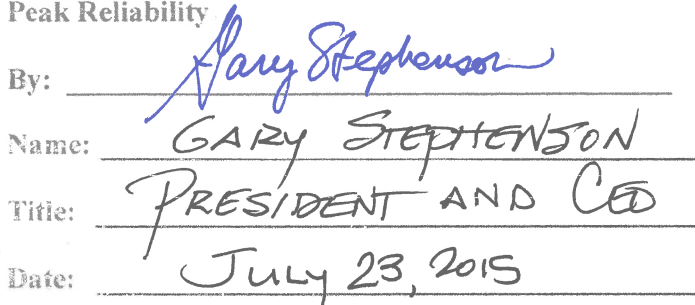 Peak Reliability
By: Gary Stephenson
Name: GARY STEPHENSON
Title: PRESIDENT AND CEO
Date: JULY 23, 2015